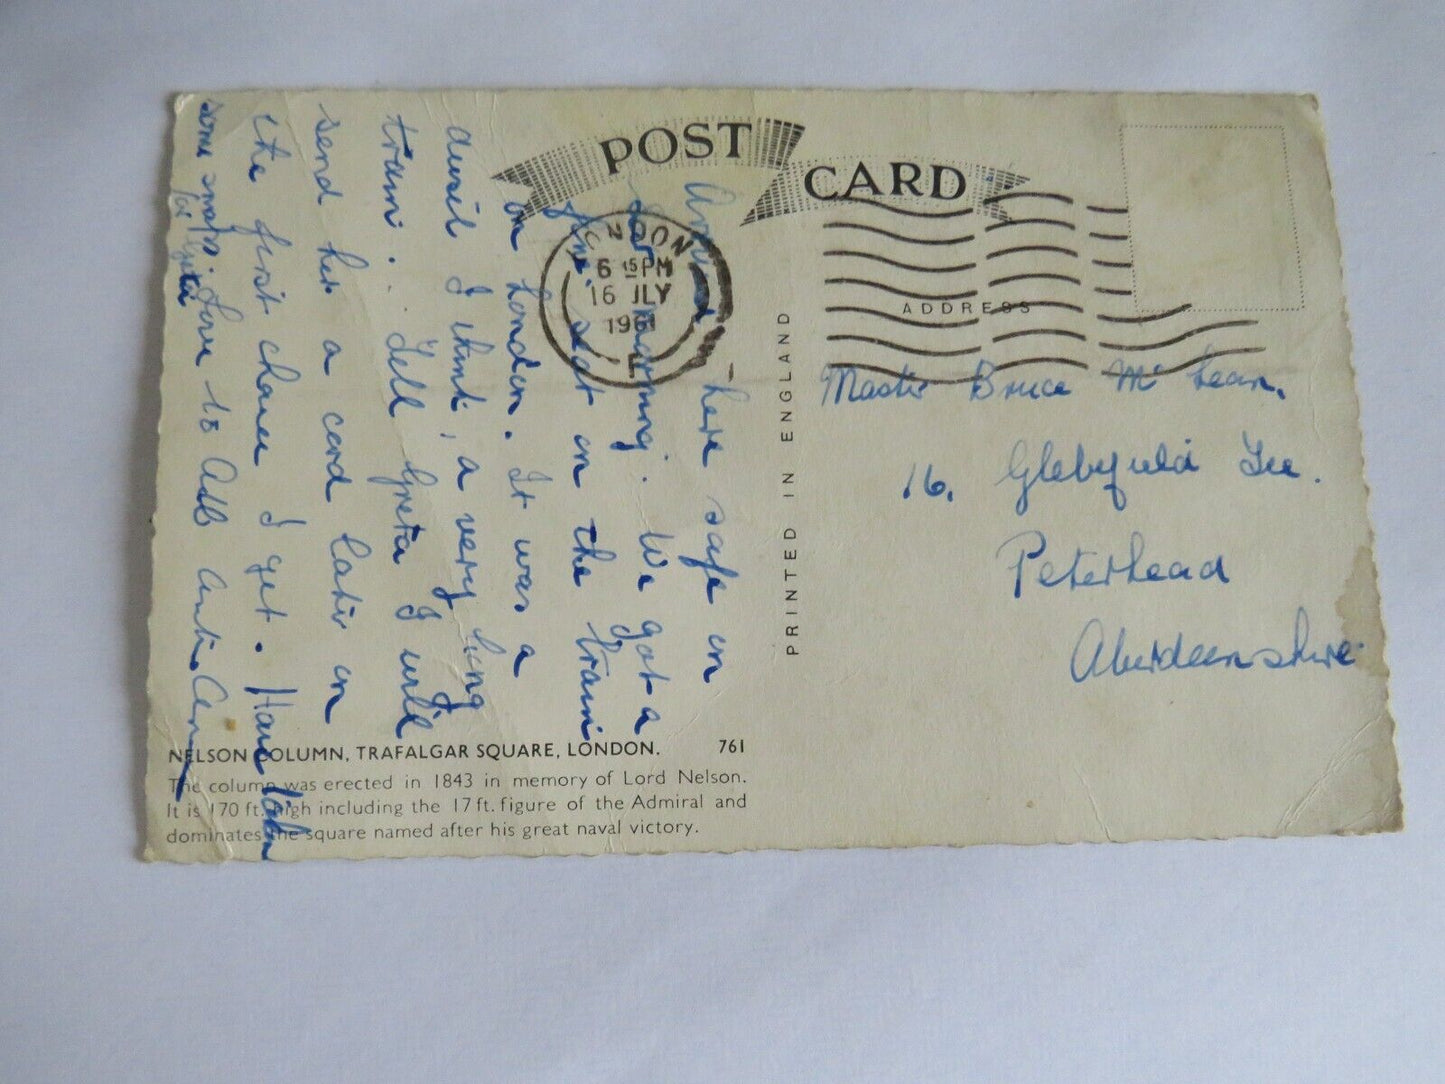 POST CARD
LONDON
6 15 PM
16 JLY
1961
E
ADDRESS
PRINTED IN ENGLAND
Arrived here safe in
morning. We got a
fine seat on the train
in London. It was a
I think, a very long
train. Tell Greta I will
send her a card later on
the first chance I get. Have taken
some snaps. Love to All
for Greta
Master Bruce Mc Lean.
16. Glebefield Tce.
Peterhead
Aberdeenshire
NELSON COLUMN, TRAFALGAR SQUARE, LONDON. 761
The column was erected in 1843 in memory of Lord Nelson.
It is 170 ft. high including the 17 ft. figure of the Admiral and
dominates the square named after his great naval victory.